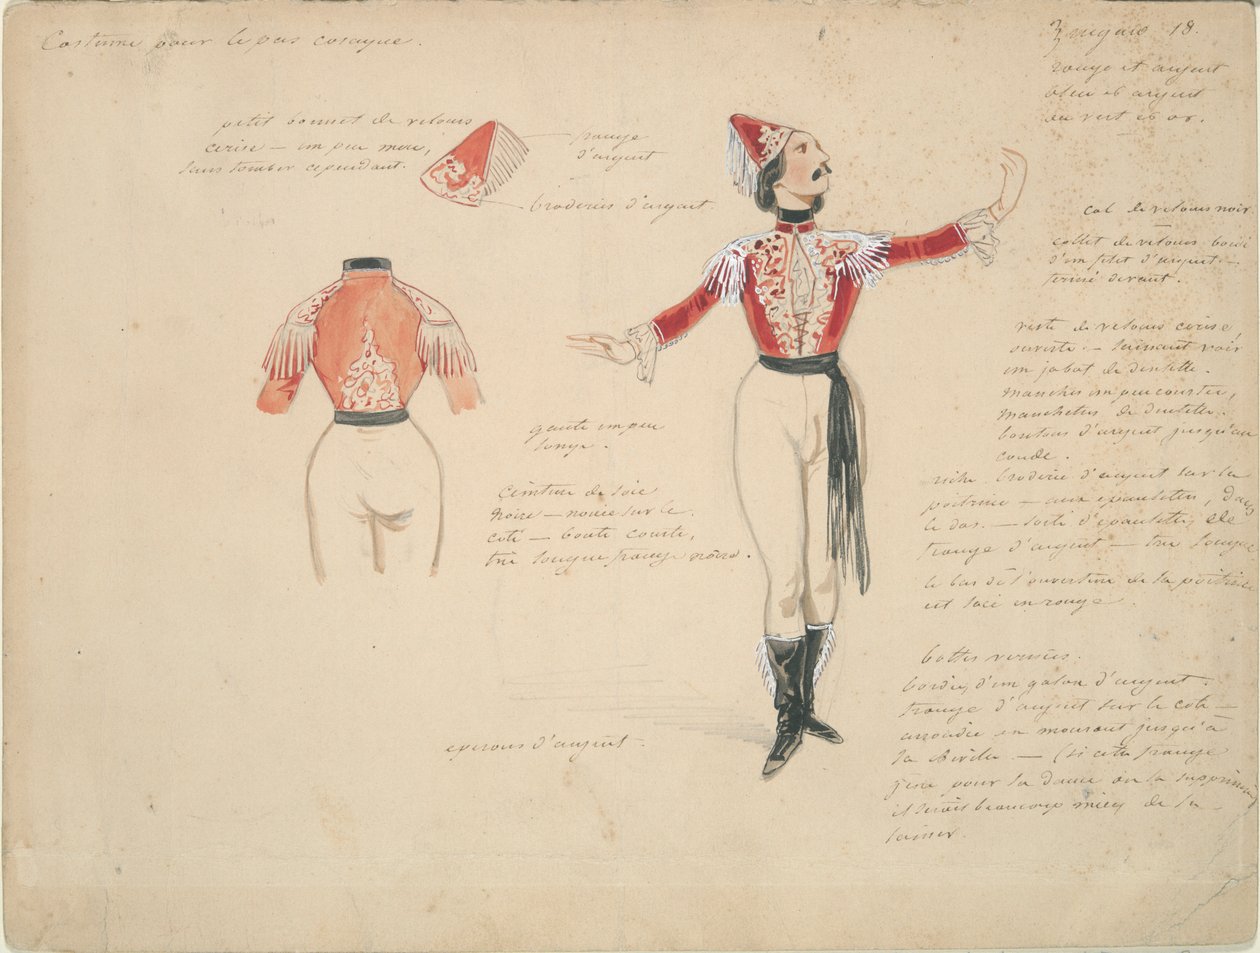 Costume pour le pas cosaque.
Zingaro 18.
rouge et argent
bleu et argent
ou vert et or.
petit bonnet de velours
cerise — un peu mou,
sans tomber cependant.
frange
d'argent
broderies d'argent.
col de velours noir
collet de velours bordé
d'un filet d'argent —
fermé devant.
veste de velours cerise,
ouverte — laissant voir
un jabot de dentelle.
manches un peu courtes,
manchettes de dentelle.
boutons d'argent jusqu'au
coude.
riche broderie d'argent sur la
poitrine — aux épaulettes, dans
le dos. — sorte d'épaulettes de
frange d'argent — très longue
le bas de l'ouverture de la poitrine
est lacé en rouge.
gants un peu
longs.
Ceinture de soie
noire — nouée sur le
côté — bouts courts,
très longue frange noire.
bottes vernies.
bordées d'un galon d'argent.
frange d'argent sur le côté —
arrondie en mourant jusqu'à
la cheville — (si cette frange
gêne pour la danse on la supprimera
il serait beaucoup mieux de la
laisser.
eperons d'argent.